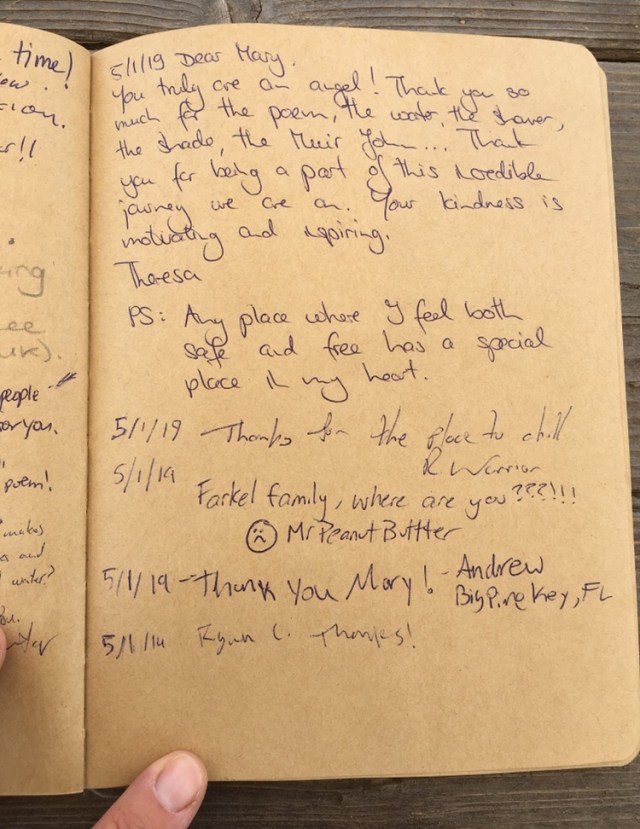 time!
ow.
ion.
er!!
ing
ee
UK).
people
for you.
poem!
makes
a and
water?
5/1/19 Dear Mary,
you truly are an angel! Thank you so
much for the poem, the water, the shower,
the shade, the Muir John... Thank
you for being a part of this incredible
journey we are on. Your kindness is
motivating and inspiring.
Theresa
PS: Any place where I feel both
safe and free has a special
place in my heart.
5/1/19 Thanks for the place to chill
R Warrior
5/1/19
Farkel family, where are you???!!!
☹ Mr Peanut Buttter
5/1/19 - Thank you Mary! - Andrew
Big Pine Key, FL
5/1/19 Ryan C. Thanks!